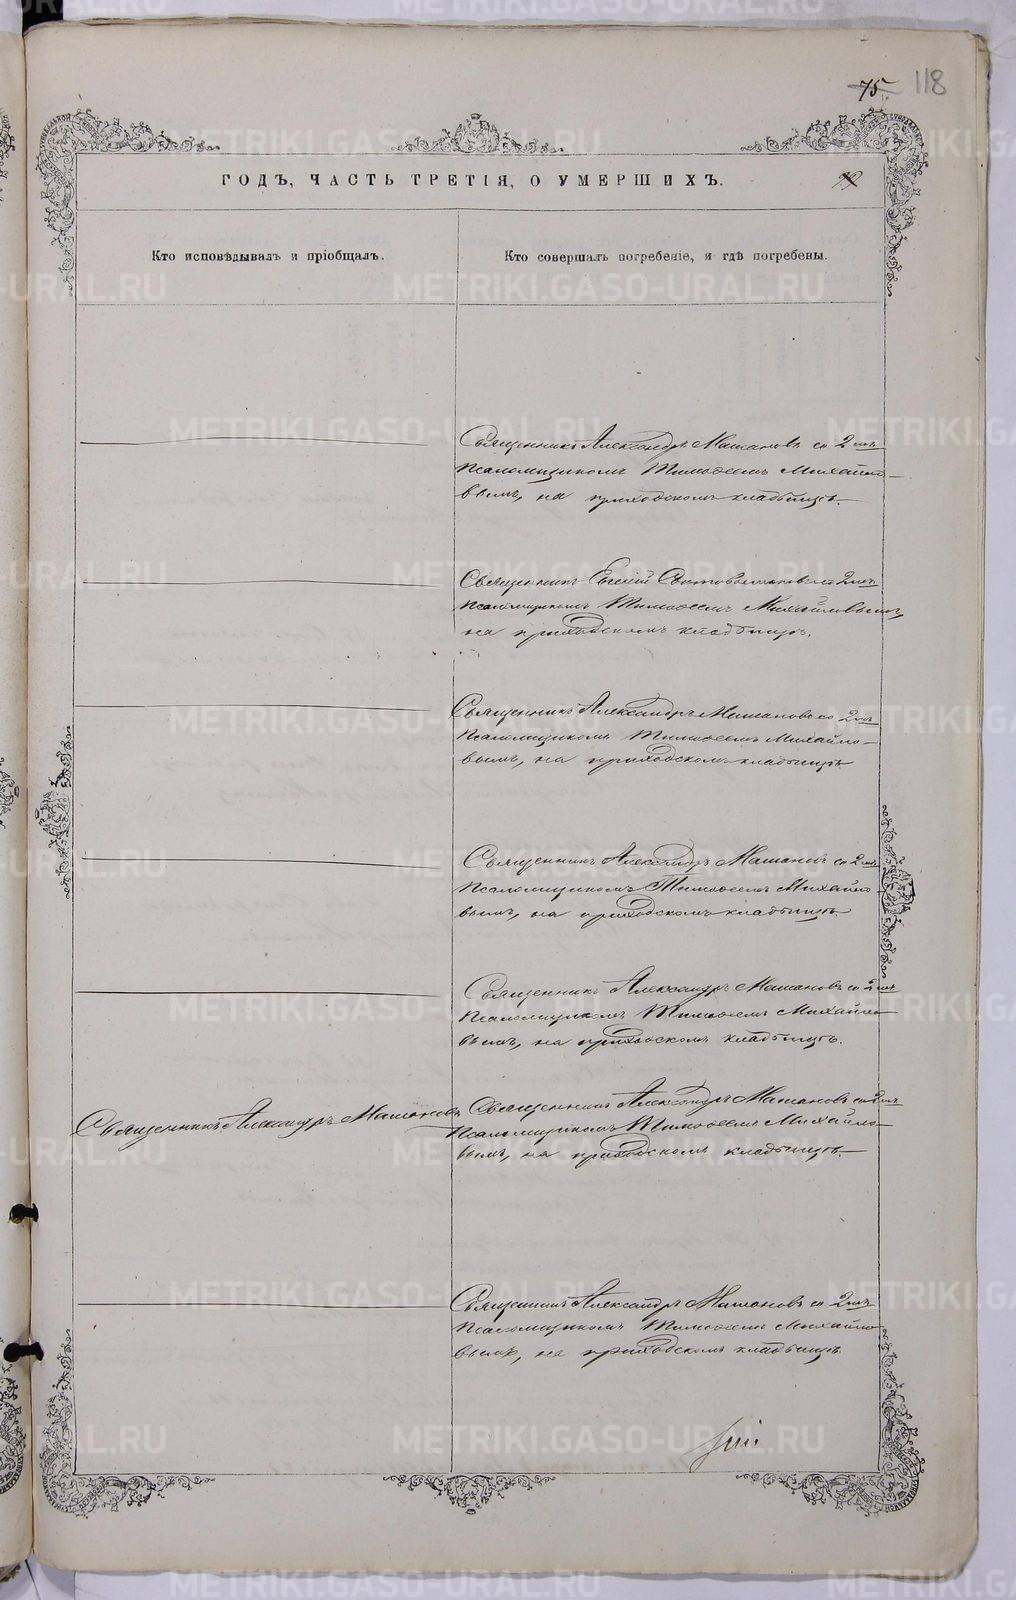 75 118
ГОДЪ, ЧАСТЬ ТРЕТІЯ, О УМЕРШИХЪ.
Кто исповѣдывалъ и пріобщалъ.
Кто совершалъ погребеніе, и гдѣ погребены.
Священникъ Александръ Машановъ со 2мъ
Псаломщикомъ Тимоѳеемъ Михайло-
вымъ, на приходскомъ кладбищѣ.
Священникъ Евгеній со 2мъ
Псаломщикомъ Тимоѳеемъ Михайловымъ,
на приходскомъ кладбищѣ.
Священникъ Александръ Машановъ со 2мъ
Псаломщикомъ Тимоѳеемъ Михайло-
вымъ, на приходскомъ кладбищѣ
Священникъ Александръ Машановъ со 2мъ
Псаломщикомъ Тимоѳеемъ Михайло-
вымъ, на приходскомъ кладбищѣ
Священникъ Александръ Машановъ со 2мъ
Псаломщикомъ Тимоѳеемъ Михайло-
вымъ, на приходскомъ кладбищѣ.
Священникъ Александръ Машановъ
Священникъ Александръ Машановъ со 2мъ
Псаломщикомъ Тимоѳеемъ Михайло-
вымъ, на приходскомъ кладбищѣ.
Священникъ Александръ Машановъ со 2мъ
Псаломщикомъ Тимоѳеемъ Михайло-
вымъ, на приходскомъ кладбищѣ
METRIKI.GASO-URAL.RU